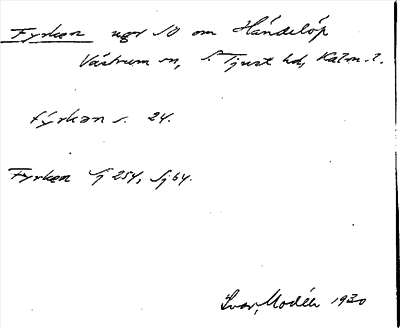 Fyrken ugr SO om Händelöp
Västrum sn, S. Tjust hd, Kalm. l.
fyrkan s. 24.
Fyrken Gj 254, Sj 64.
Ivar Modéer 1930